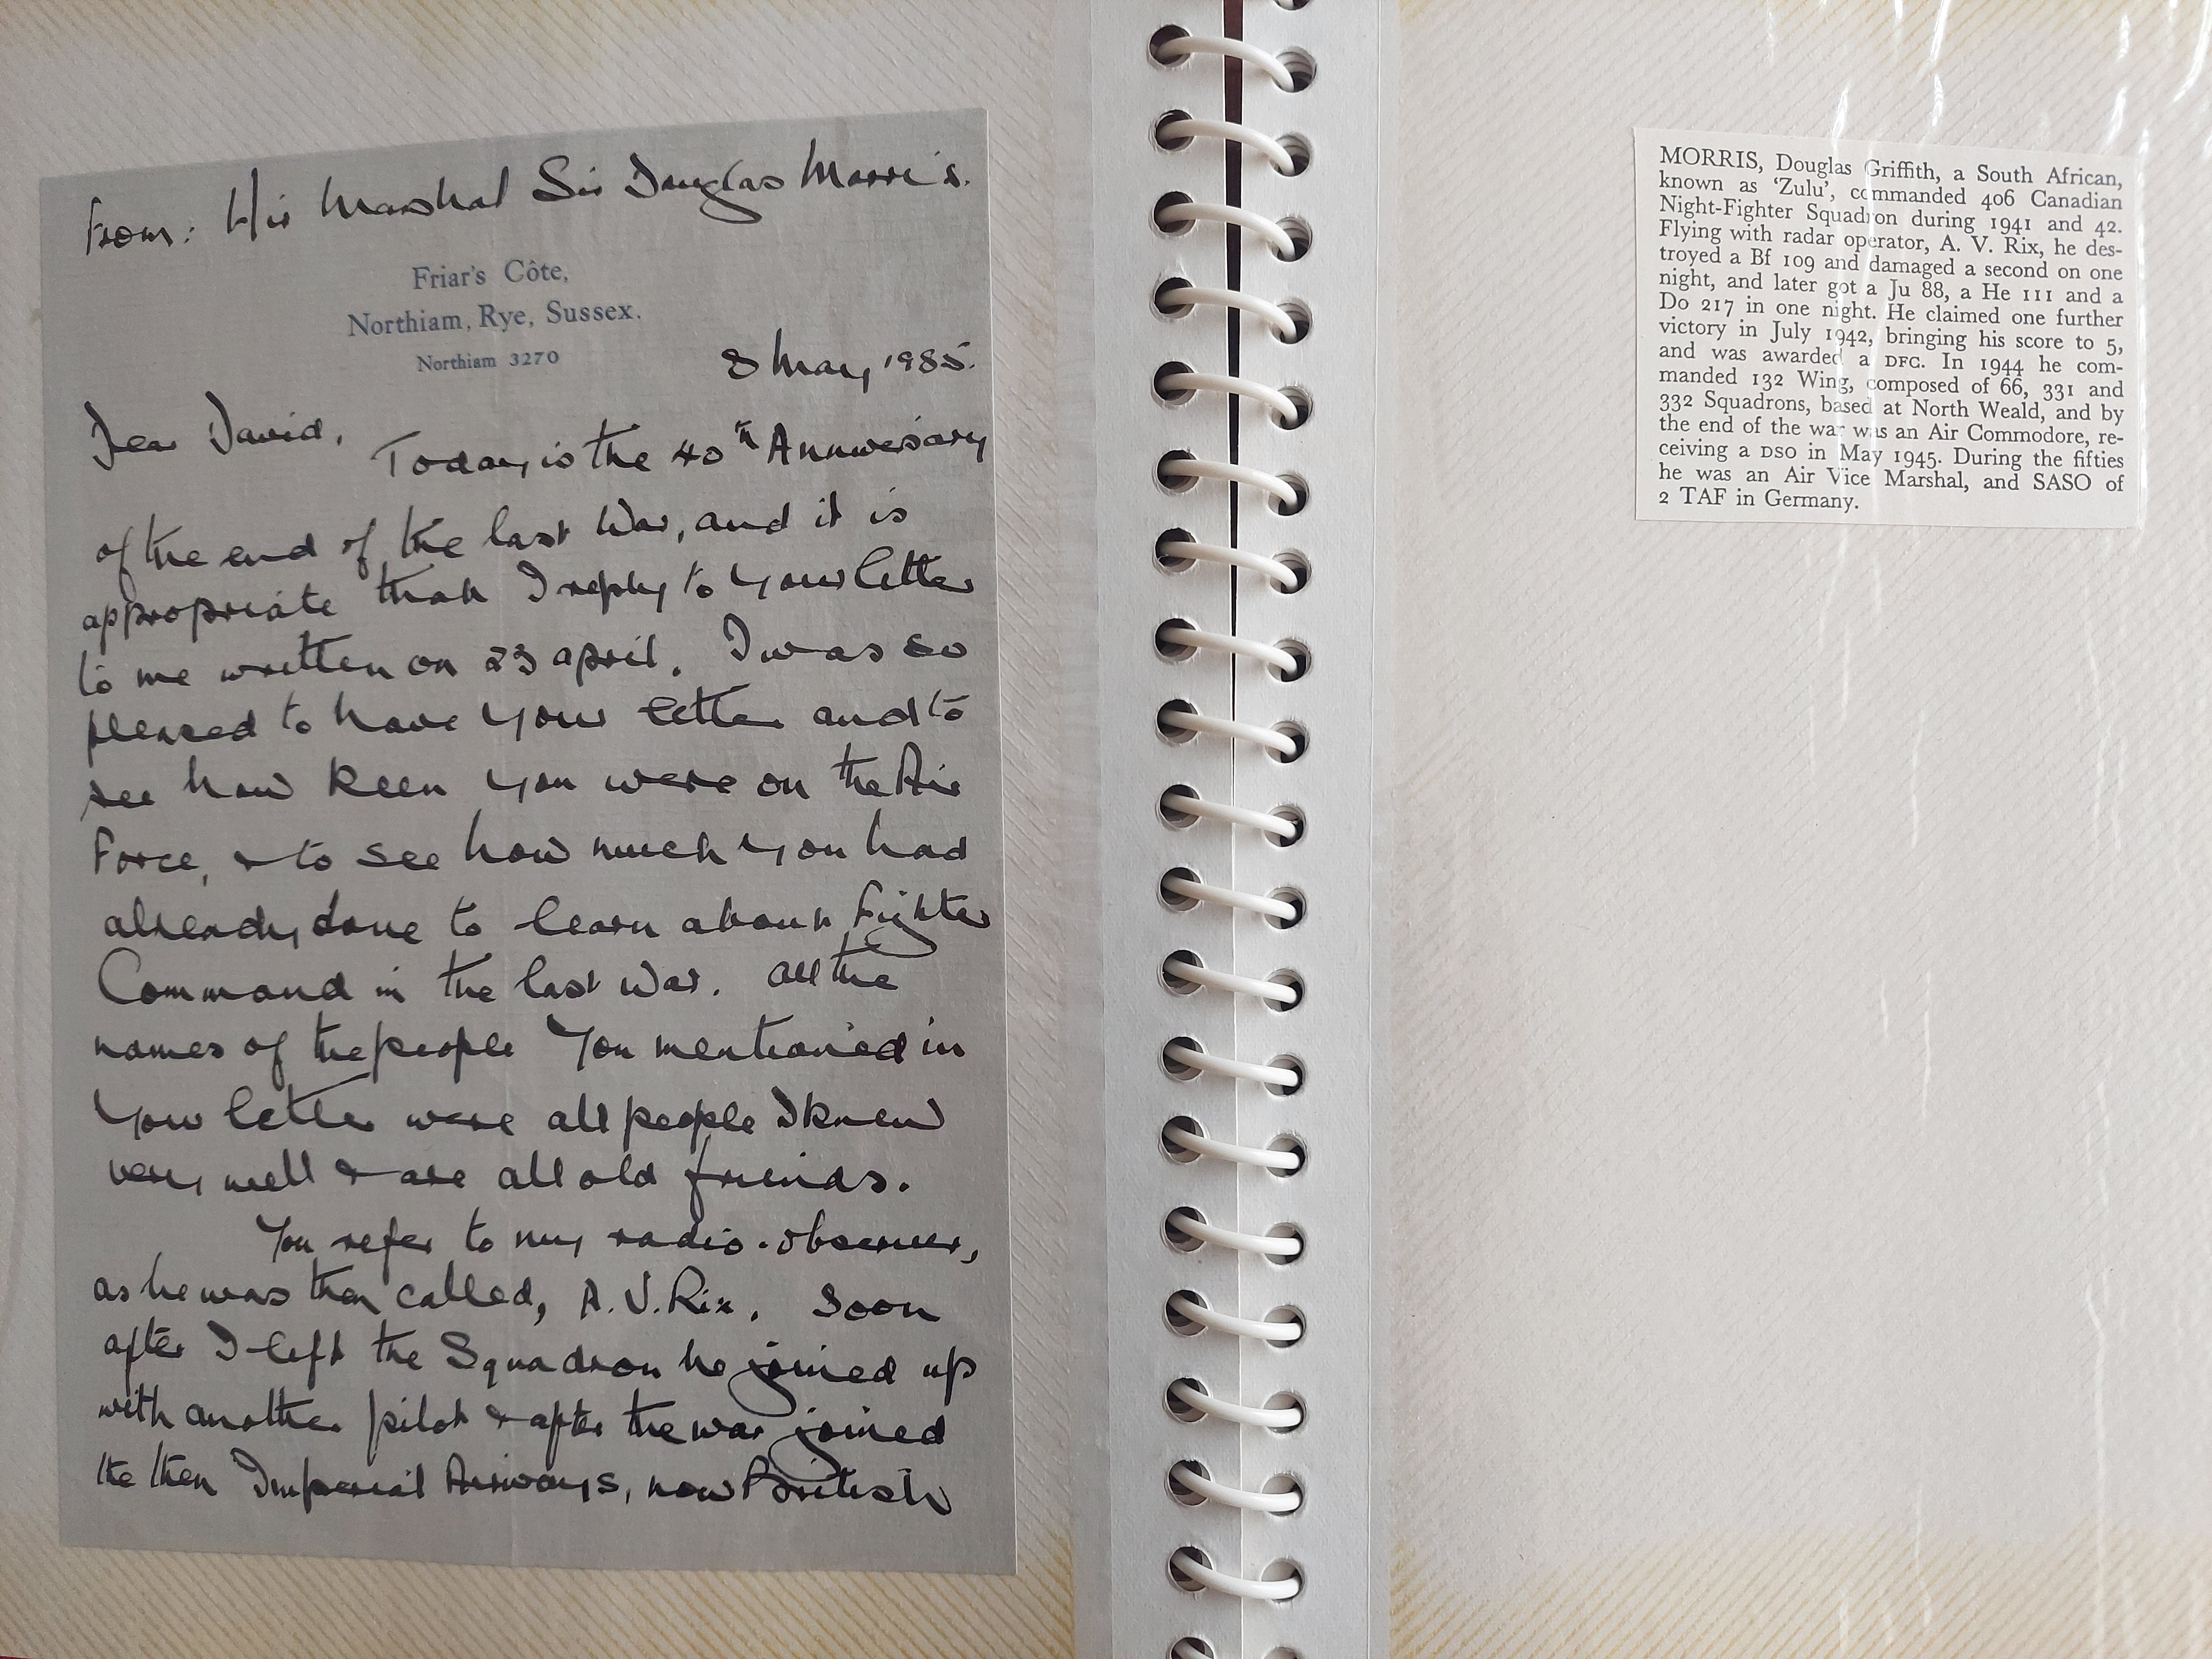 From: Air Marshal Sir Douglas Morris.
Friar's Côte,
Northiam, Rye, Sussex.
Northiam 3270
8 May, 1985.
Dear David,
Today is the 40th Anniversary
of the end of the last War, and it is
appropriate that I reply to your letter
to me written on 23 april. I was so
pleased to have your letter and to
see how keen you were on the Air
Force, & to see how much you had
already done to learn about Fighter
Command in the last War. All the
names of the people you mentioned in
your letter were all people I knew
very well & are all old friends.
You refer to my radio-observer,
as he was then called, A.V. Rix. Soon
after I left the Squadron he joined up
with another pilot & after the war joined
the then Imperial Airways, now British
MORRIS, Douglas Griffith, a South African,
known as 'Zulu', commanded 406 Canadian
Night-Fighter Squadron during 1941 and 42.
Flying with radar operator, A. V. Rix, he des-
troyed a Bf 109 and damaged a second on one
night, and later got a Ju 88, a He 111 and a
Do 217 in one night. He claimed one further
victory in July 1942, bringing his score to 5,
and was awarded a DFC. In 1944 he com-
manded 132 Wing, composed of 66, 331 and
332 Squadrons, based at North Weald, and by
the end of the war was an Air Commodore, re-
ceiving a DSO in May 1945. During the fifties
he was an Air Vice Marshal, and SASO of
2 TAF in Germany.